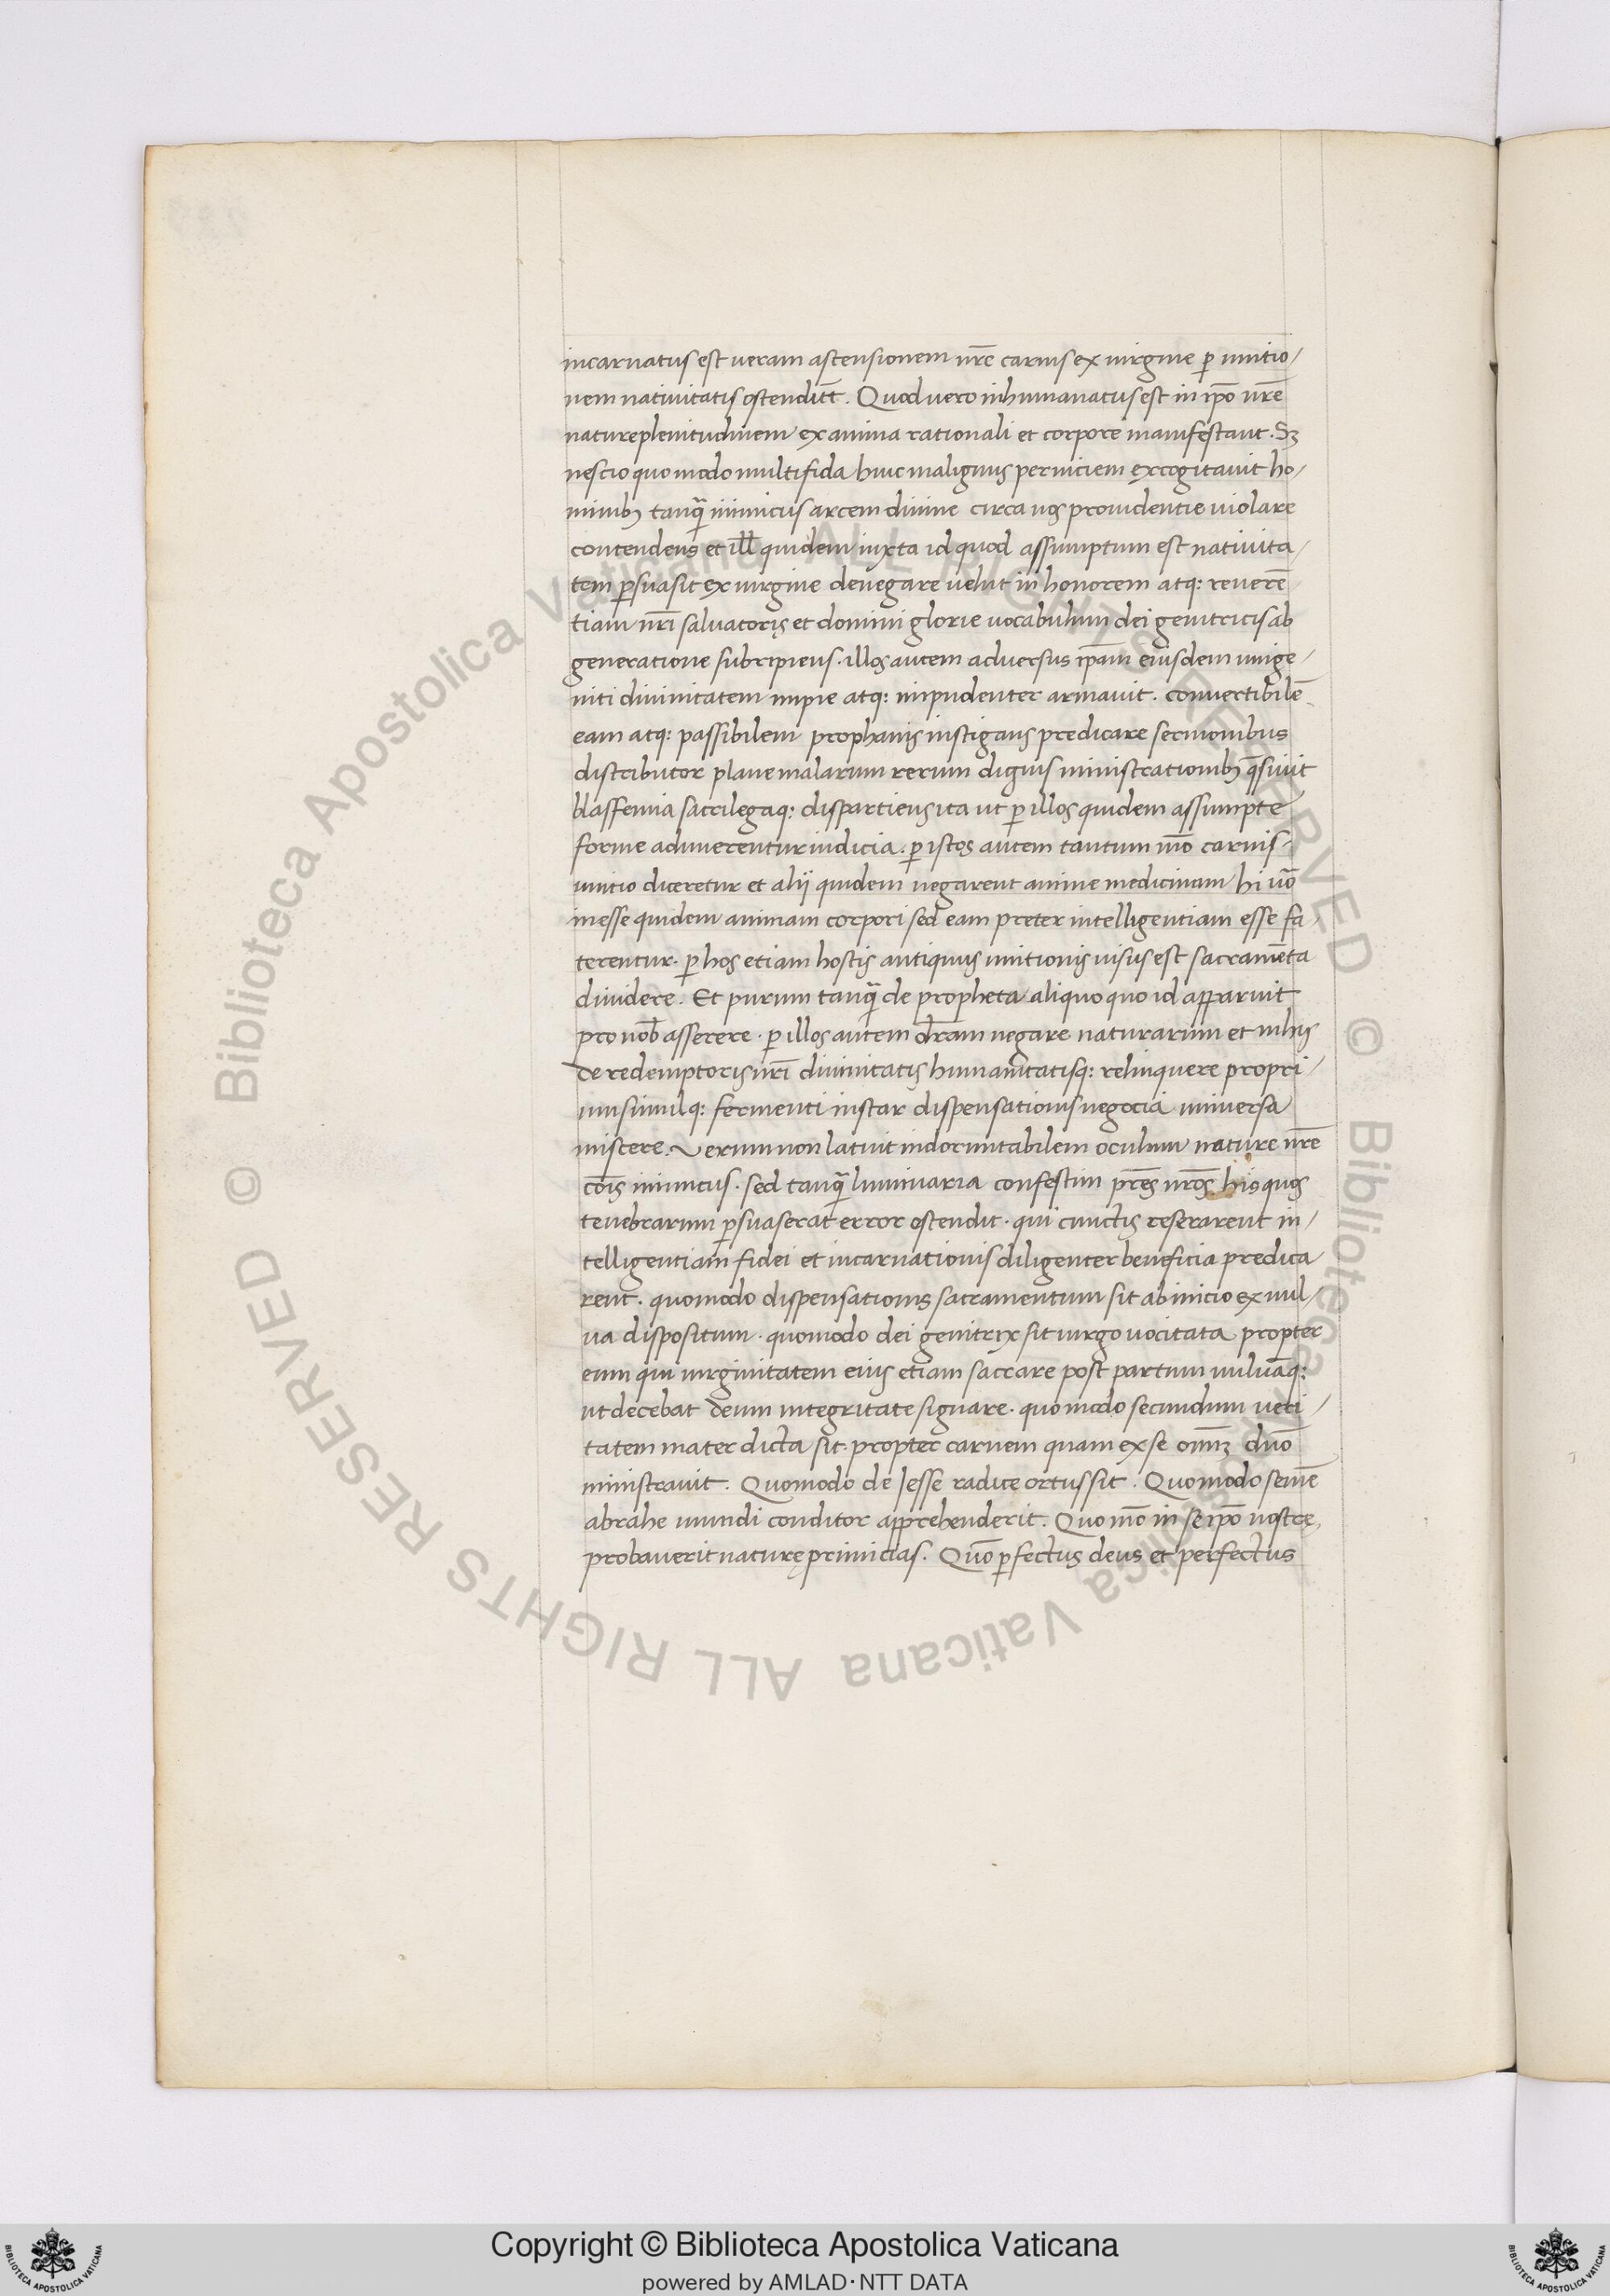 incarnatus est veram ascensionem nr̄e carnis ex virgine ꝑ unitio/
nem nativitatis ostendūt. Quod vero inhumanatus est in ip̄o nr̄e
nature plenitudinem ex anima rationali et corpore manifestant. Sꝫ
nescio quomodo multifida hinc malignus perniciem excogitavit ho/
minibꝫ tanq̄ inimicus arcem divine circa nos providentie violare
contendens et ill̄ quidem iuxta id quod assumptum est nativita/
tem ꝑsuasit ex virgine denegare velut in honorem atq: reverē
tiam nr̄i salvatoris et domini glorie vocabulum dei genitricis ab
generatione subripiens. illos autem adversus ip̄am eiusdem unige/
niti divinitatem impie atq: impudenter armavit. convertibilē
eam atq: passibilem prophanis instigans predicare sermonibus
distributor plane malarum rerum dignis ministrationibꝫ q̄sivit
blasfemia sacrilegaq: dispartiens ita ut ꝑ illos quidem assumpte
forme adimerentur indicia. ꝑ istos autem tantum mō carnis
unitio diceretur et alij quidem negarent anime medicinam hi v̄o
inesse quidem animam corpori sed eam preter intelligentiam esse fa/
terentur. ꝑ hos etiam hostis antiquus unitionis visus est sacramēta
dividere. Et purum tanq̄ de propheta aliquo quo id apparuit
pro nob̄ asserere. ꝑ illos autem dr̄am negare naturarum et nihis
de redemptoris nr̄i divinitatis humanitatisq: relinquere propri/
um simulq: fermenti instar dispensationis negocia universa
miscere. Verum non latuit indormitabilem oculum nature nr̄e
cōis inimicus. sed tanq̄ luminaria confestim pr̄es nr̄os his quos
tenebrarum ꝑsuaserat error ostendit. qui cunctis reserarent in/
telligentiam fidei et incarnationis diligenter beneficia predica
rent. quomodo dispensationis sacramentum sit ab inicio ex vul/
va dispositum. quomodo dei genitrix sit virgo vocitata propter
eum qui virginitatem eius etiam saccare post partum vulvāq:
ut decebat deum integritate signare. quomodo secundum veri/
tatem mater dicta sit. propter carnem quam ex se om̄iꝫ dn̄o
ministravit. Quomodo de Jesse radice ortus sit. Quomodo semē
abrahe mundi conditor apprehenderit. Quo mō in se ip̄o nostre
probaverit naturę primicias. Quō ꝑfectus deus et perfectus
© Biblioteca Apostolica Vaticana ALL RIGHTS RESERVED
© Biblioteca Apostolica Vaticana ALL RIGHTS RESERVED
Copyright © Biblioteca Apostolica Vaticana
powered by AMLAD·NTT DATA
BIBLIOTECA APOSTOLICA VATICANA
BIBLIOTECA APOSTOLICA VATICANA